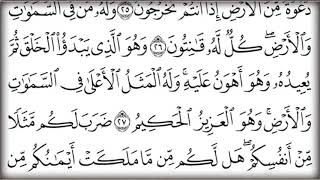 دَعْوَةً مِّنَ ٱلْأَرْضِ إِذَآ أَنتُمْ تَخْرُجُونَ ٢٥ وَلَهُۥ مَن فِى ٱلسَّمَٰوَٰتِ
وَٱلْأَرْضِ ۖ كُلٌّ لَّهُۥ قَٰنِتُونَ ٢٦ وَهُوَ ٱلَّذِى يَبْدَؤُا۟ ٱلْخَلْقَ ثُمَّ
يُعِيدُهُۥ وَهُوَ أَهْوَنُ عَلَيْهِ ۚ وَلَهُ ٱلْمَثَلُ ٱلْأَعْلَىٰ فِى ٱلسَّمَٰوَٰتِ
وَٱلْأَرْضِ ۚ وَهُوَ ٱلْعَزِيزُ ٱلْحَكِيمُ ٢٧ ضَرَبَ لَكُم مَّثَلًا
مِّنْ أَنفُسِكُمْ ۖ هَل لَّكُم مِّن مَّا مَلَكَتْ أَيْمَٰنُكُم مِّن